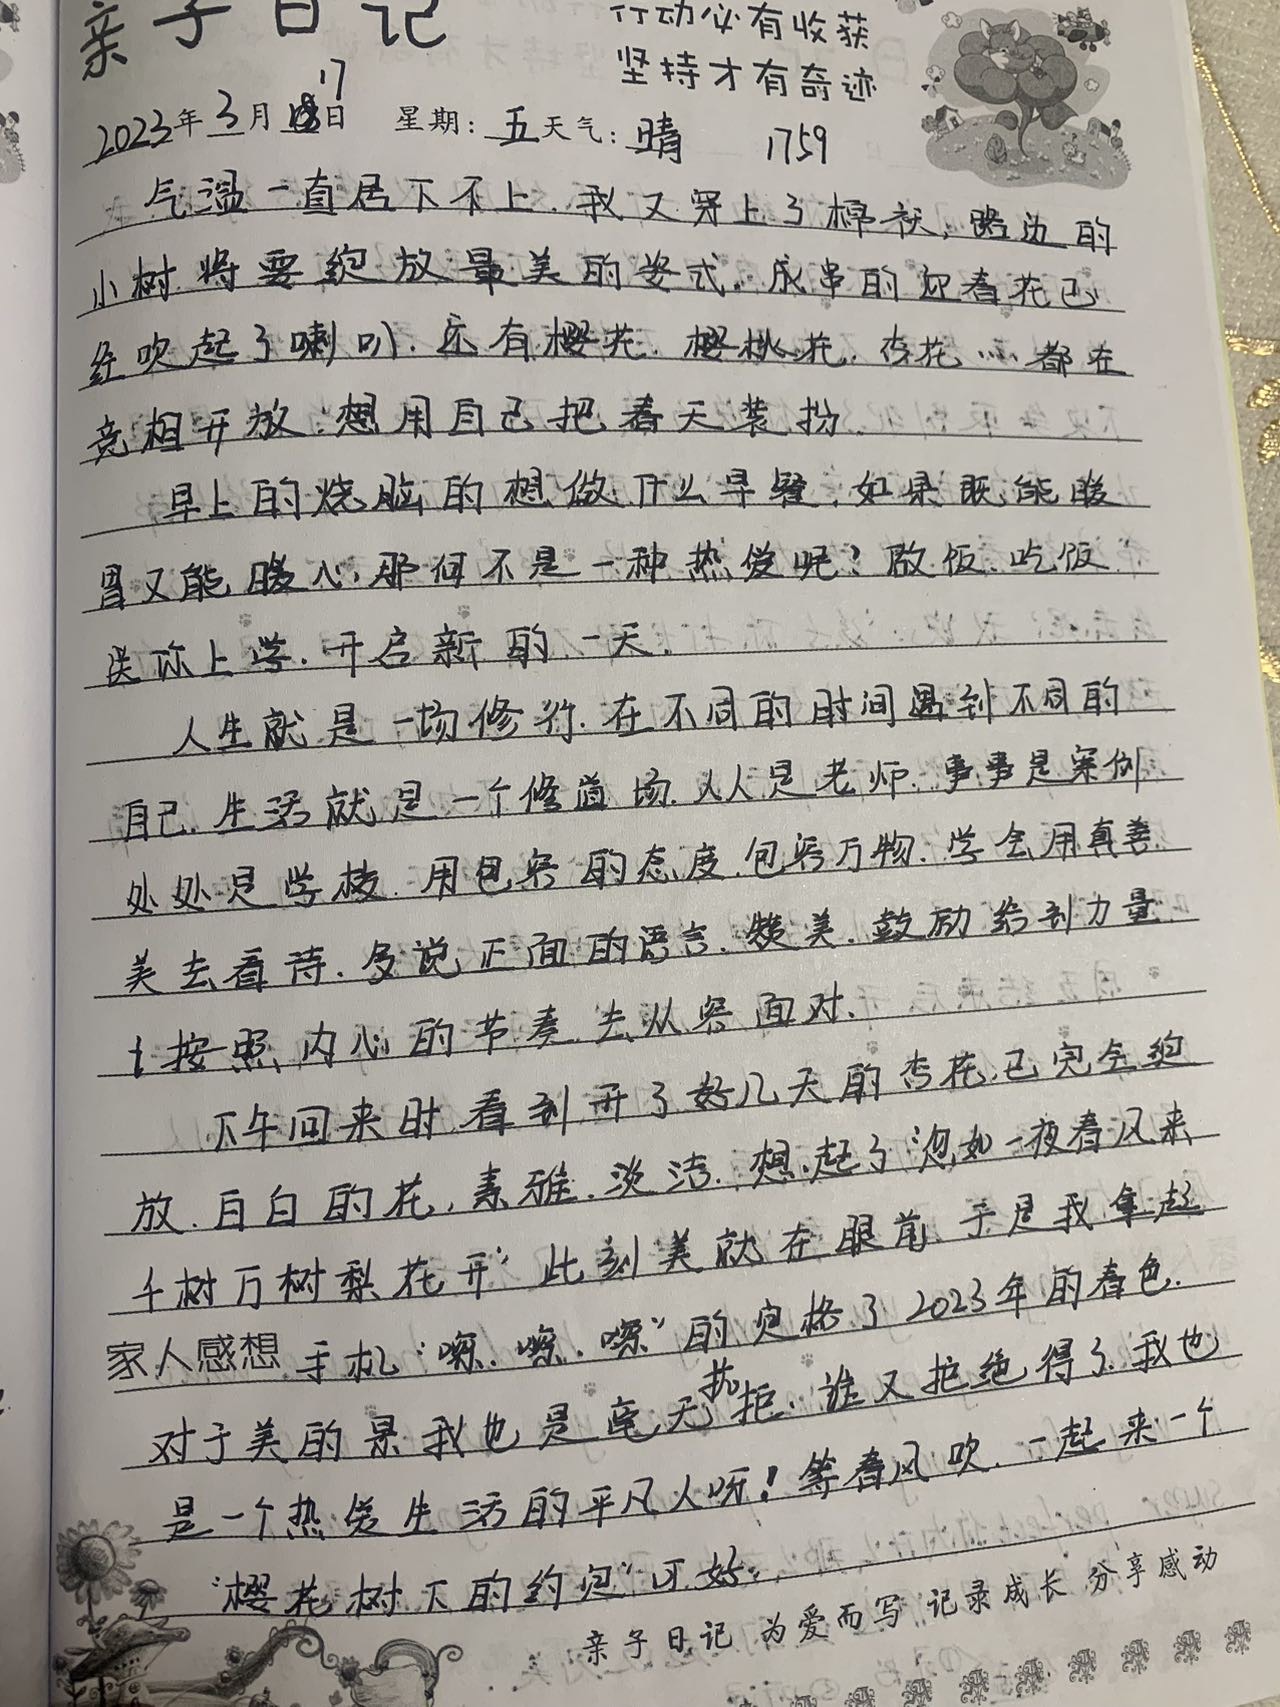 亲子日记
行动必有收获
坚持才有奇迹
17
2023年3月日 星期:五 天气:晴 1759
气温一直居下不上.我又穿上了棉袄,路边的
小树将要绽放最美的姿式。成串的迎春花已
经吹起了喇叭.还有樱花.樱桃花.杏花……都在
竞相开放.想用自己把春天装扮.
早上的烧脑的想做什么早餐.如果既能暖
胃又能暖心.那何不是一种热爱呢?做饭.吃饭
送你上学.开启新的一天.
人生就是一场修行.在不同的时间遇到不同的
自己.生活就是一个修道场.人人是老师.事事是案例
处处是学校.用包容的态度.包容万物.学会用真善
美去看待.多说正面的语言.赞美.鼓励给到力量
按照内心的节奏去从容面对.
下午回来时看到开了好几天的杏花.已完全绽
放.白白的花,素雅.淡洁.想起了"忽如一夜春风来
千树万树梨花开"此刻美就在眼前 于是我拿起
家人感想 手机"嚓.嚓.嚓"的定格了2023年的春色.
对于美的景我也是毫无抗拒.谁又拒绝得了.我也
是一个热爱生活的平凡人呀!等春风吹.一起来一个
"樱花树下的约定"可好.
亲子日记 为爱而写 记录成长 分享感动